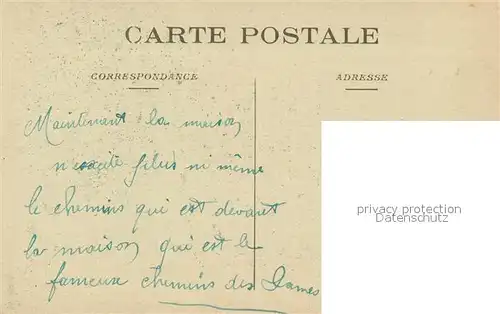 CARTE POSTALE
CORRESPONDANCE
ADRESSE
Maintenant la maison
n'existe plus ni même
le chemins qui est devant
la maison qui est le
fameux chemins des Dames
privacy protection
Datenschutz